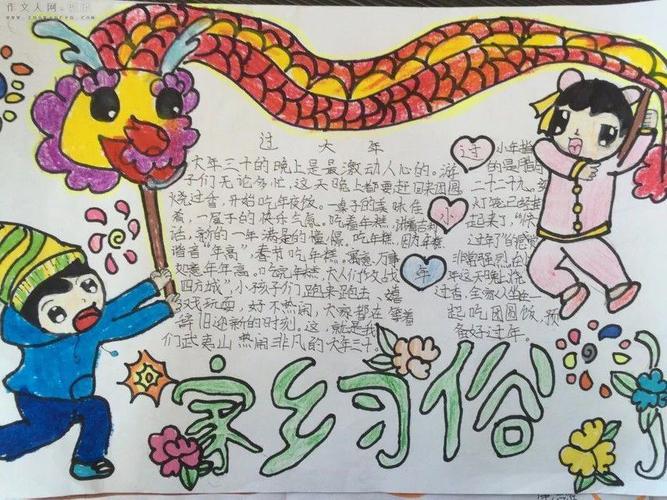 作文人网
过大年
大年三十的晚上是最激动人心的。游
子们无论多忙,这天晚上都要赶回来团圆
烧过香,开始吃年夜饭。一桌子的美味佳
肴,一屋子的快乐气氛。吃着年糕,
话,新的一年满是的憧憬。吃年糕,因为年糕
谐音“年高”,春节吃年糕。寓意万事
如意年年高。吃完年糕,大人们作文战
四方城”,小孩子们跑来跑去,嬉
戏玩耍,好不热闹,大家都在等着
辞旧迎新的时刻。这,就是我
们武夷山热闹非凡的大年三十。
过
小
年
小年
的是腊月
二十九,
灯笼已经挂
起来了,“快
过年了”的感觉
非常强烈,在小
年这天晚上,烧
过香,全家人坐在一
起吃团圆饭,预
备好过年。
家乡习俗